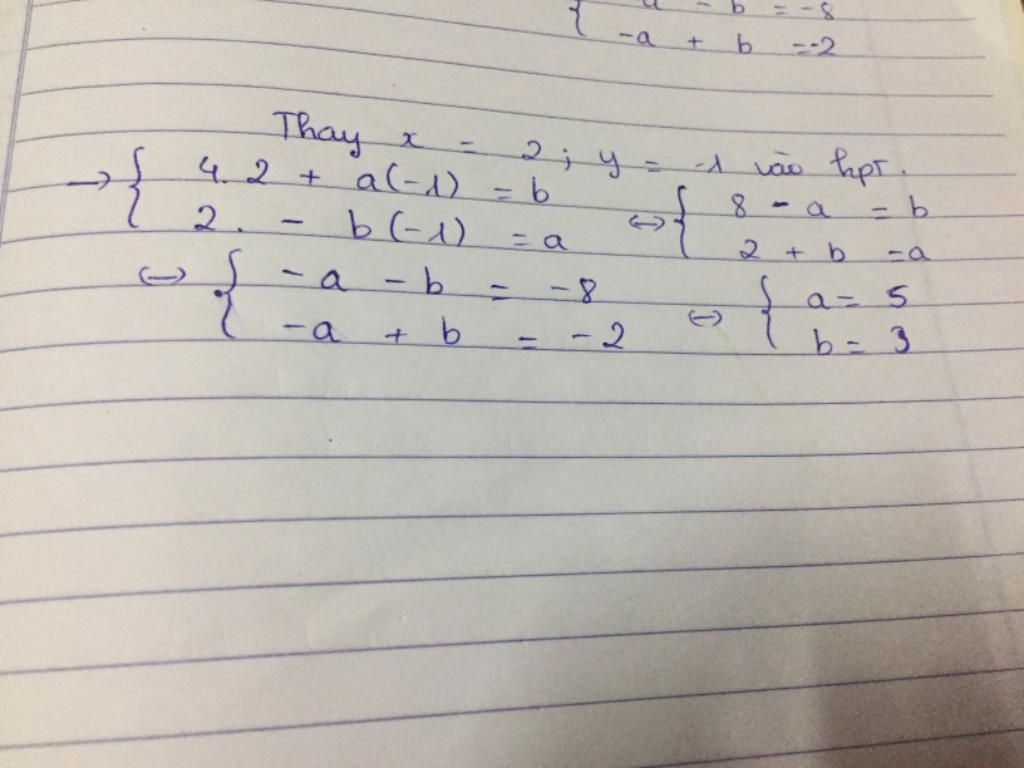 - b = -8
-a + b = -2
Thay x = 2 ; y = -1 vào hpt.
→ { 4. 2 + a(-1) = b
2. - b(-1) = a
<-> { 8 - a = b
2 + b = a
<-> { - a - b = -8
-a + b = -2
<-> { a = 5
b = 3